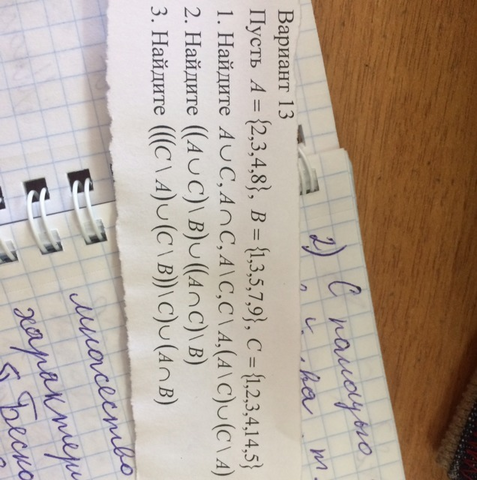 Вариант 13
Пусть A = {2,3,4,8}, B = {1,3,5,7,9}, C = {1,2,3,4,14,5}
1. Найдите A∪C, A∩C, A\C, C\A, (A\C)∪(C\A)
2. Найдите ((A∪C)\B)∪((A∩C)\B)
3. Найдите (((C\A)∪(C\B))\C)∪(A∩B)
2) С помощью
множество
характери
Беско